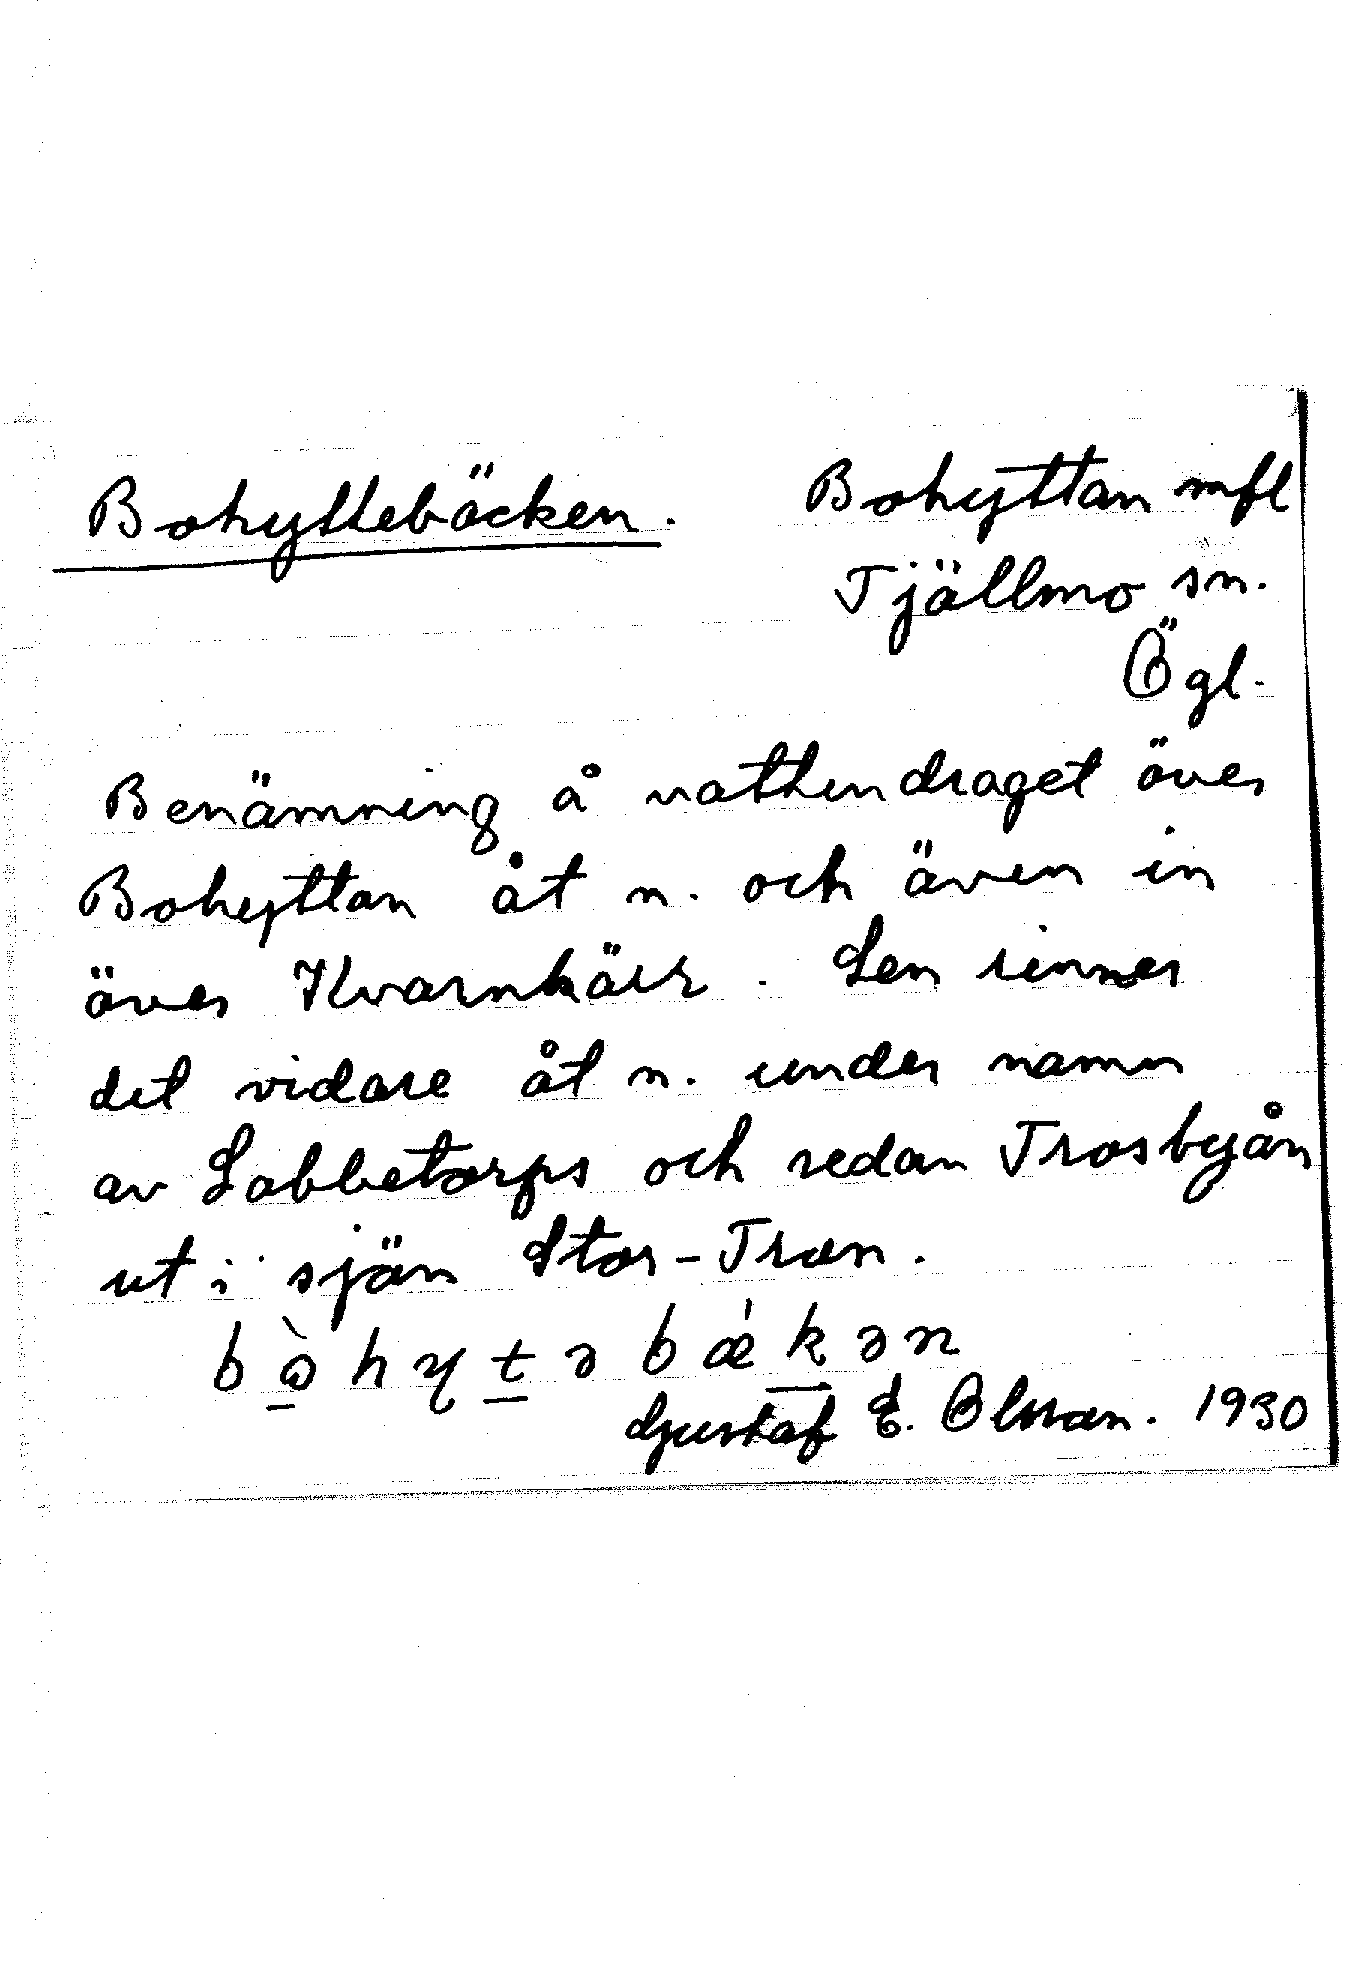 Bohyttebäcken. Bohyttan mfl
Tjällmo sn.
Ögl.
Benämning å vattendraget över
Bohyttan åt n. och även in
över Kvarnkärr. Sen rinner
det vidare åt n. under namn
av Labbetorps och sedan Trosbyån
ut i sjön Stor-Tron.
bò̱hyt̲əbǽk̲ən
Gustaf E. Olsson. 1930